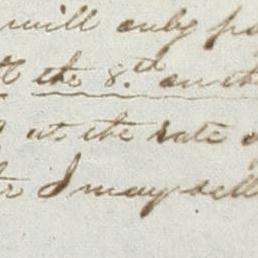 will only pa
the 8.th on th
at the rate o
I may sell